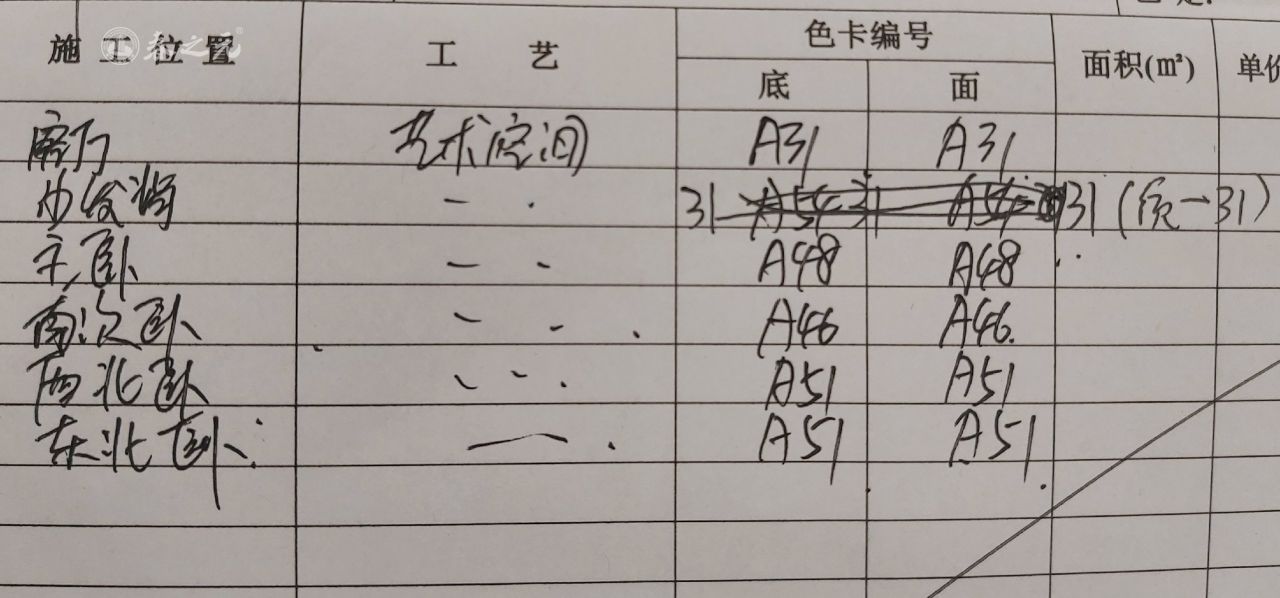 施工位置 工艺 色卡编号 面积(m²) 单价
底 面
客厅 艺术空间 A31 A31
沙发背 31 A54 31 A54 31 (质一31)
主卧 A48 A48
南次卧 A46 A46
西北卧 A51 A51
东北卧 A51 A51